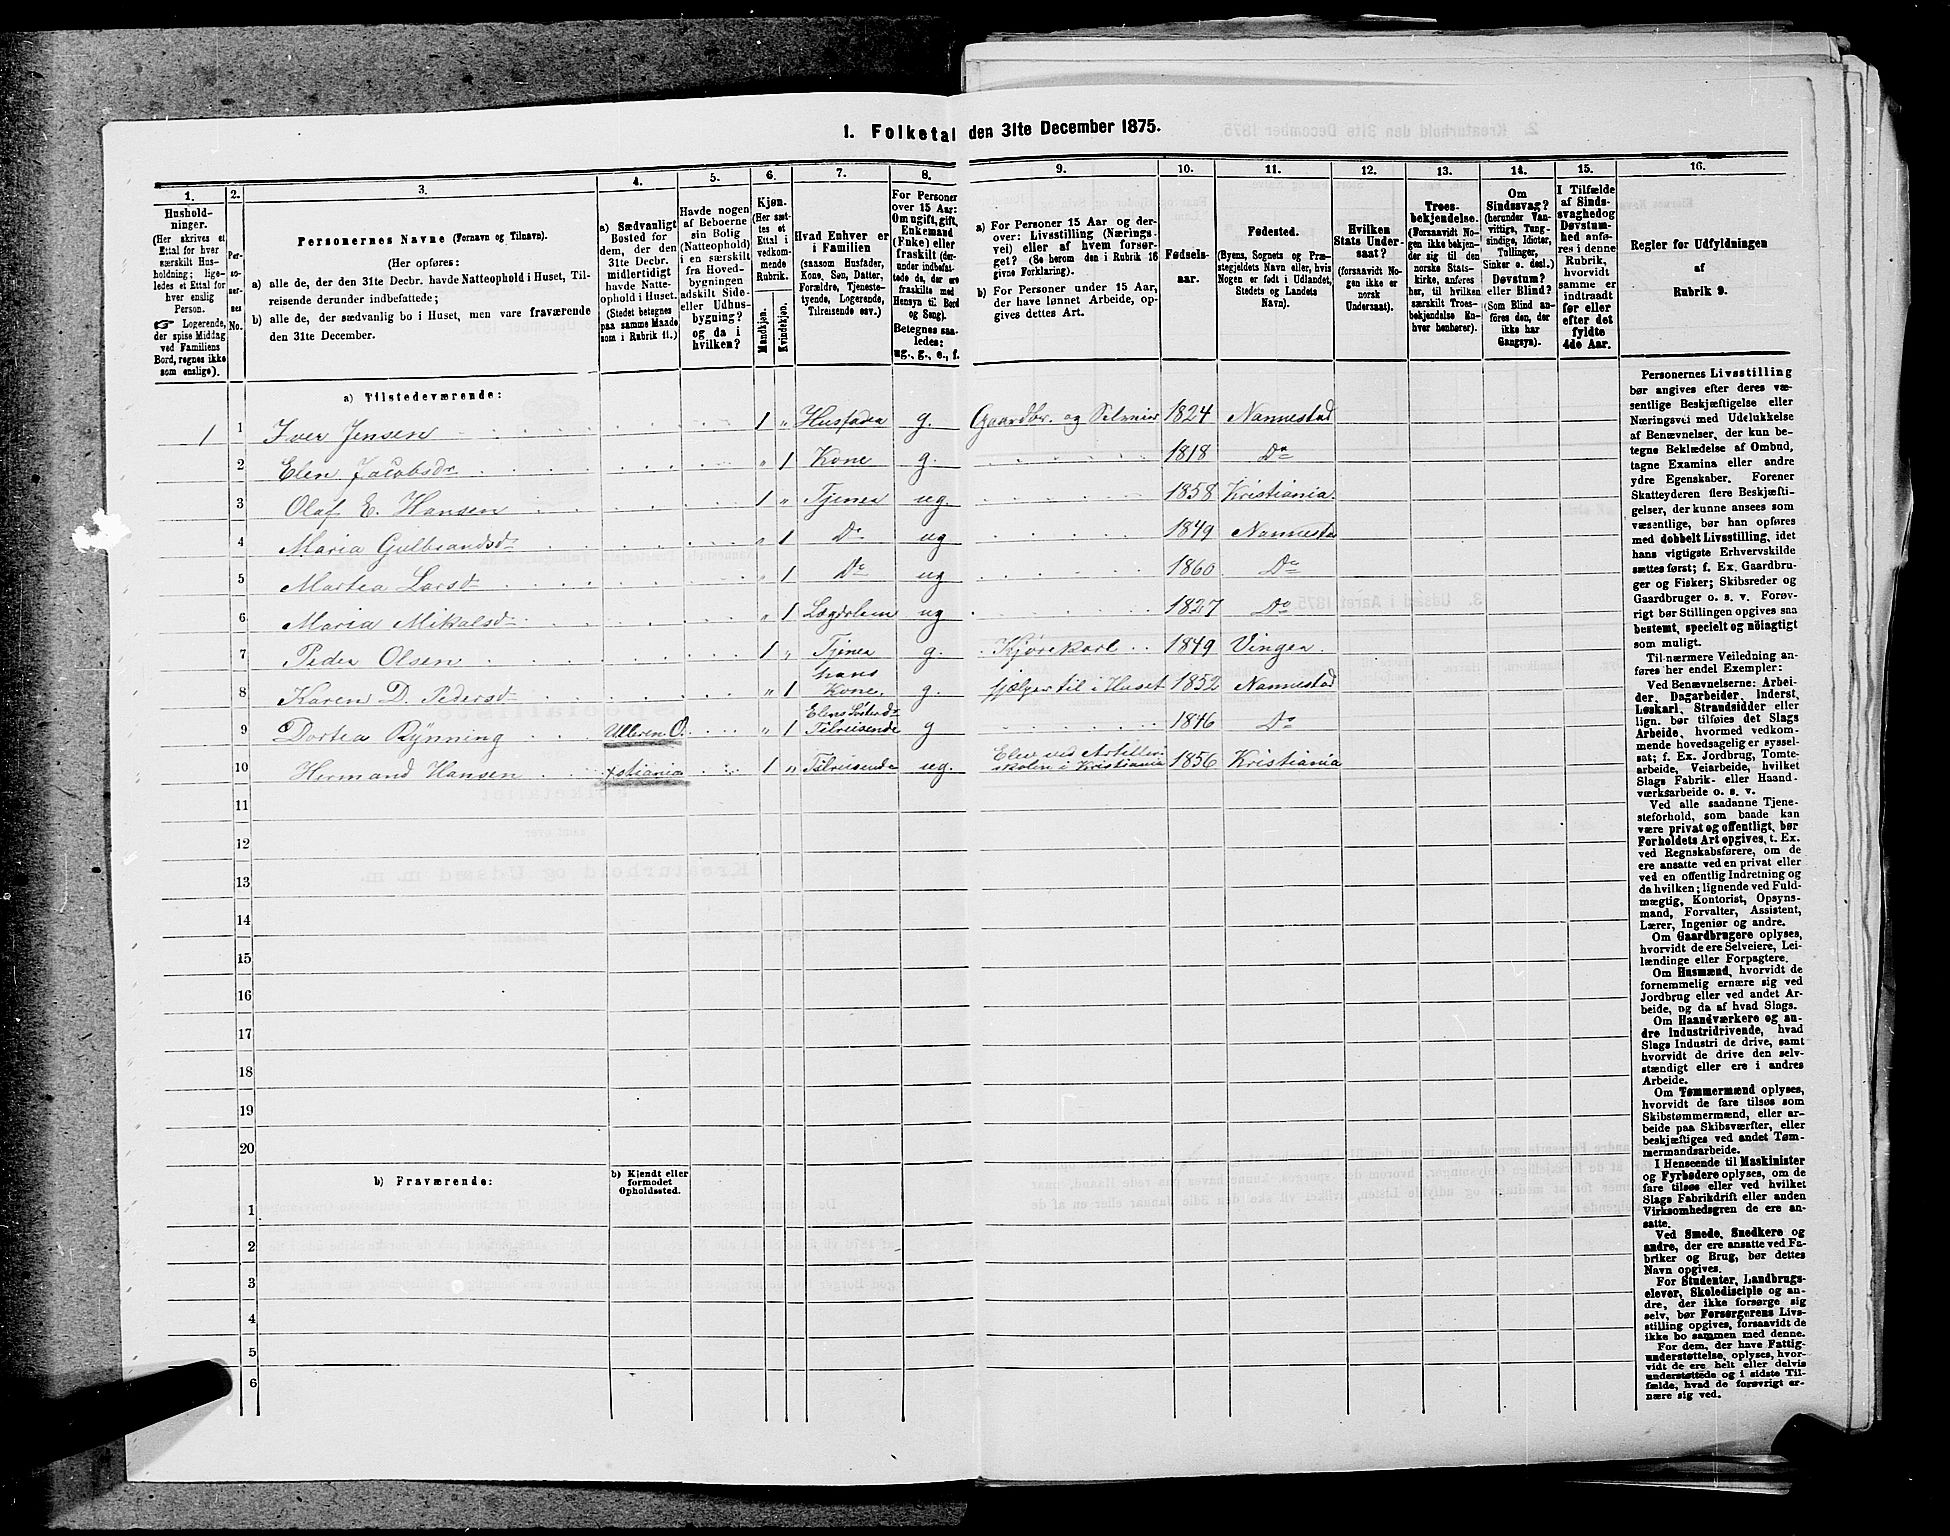 1. Folketal den 31te December 1875.
1. 2. 3. 4. 5. 6. 7. 8. 9. 10. 11. 12. 13. 14. 15. 16.
Hushold-
ninger.
(Her skrives et
Ettal for hver
særskilt Hus-
holdning; lige-
ledes et Ettal for
hver enslig
Person.
☞ Logerende,
der spise Middag
ved Familiens
Bord, regnes ikke
som enslige).
Per-
so-
ner-
nes
No.
Personernes Navne (Fornavn og Tilnavn).
(Her opføres:
a) alle de, der den 31te Decbr. havde Natteophold i Huset, Til-
reisende derunder indbefattede;
b) alle de, der sædvanlig bo i Huset, men vare fraværende
den 31te December.
a) Sædvanligt
Bosted for
dem, der den
31te Decbr.
midlertidigt
havde Natte-
ophold i Huset.
(Stedet betegnes
paa samme Maade
som i Rubrik 11.)
Havde nogen
af Beboerne
sin Bolig
(Natteophold)
i en særskilt
fra Hoved-
bygningen
adskilt Side-
eller Udhus-
bygning?
og da i
hvilken?
Kjøn.
(Her sæt-
tes et
Ettal i
vedkom-
mende
Rubrik.
Mandkjøn.
Kvindekjøn.
Hvad Enhver er
i Familien
(saasom Husfader,
Kone, Søn, Datter,
Forældre, Tjeneste-
tyende, Logerende,
Tilreisende osv.)
For Personer
over 15 Aar:
Om ugift, gift,
Enkemand
(Enke) eller
fraskilt (der-
under indbefat-
tede de, der ere
fraskilte med
Hensyn til Bord
og Seng).
Betegnes saa-
ledes:
ug., g., e., f.
a) For Personer 15 Aar og der-
over: Livsstilling (Nærings-
vei) eller af hvem forsør-
get? (Se herom den i Rubrik 16
givne Forklaring).
b) For Personer under 15 Aar,
der have lønnet Arbeide, op-
gives dettes Art.
Fødsels-
aar.
Fødested.
(Byens, Sognets og Præ-
stegjeldets Navn eller, hvis
Nogen er født i Udlandet,
Stedets og Landets
Navn).
Hvilken
Stats Under-
saat?
(forsaavidt No-
gen ikke er
norsk
Undersaat).
Troes-
bekjendelse.
(Forsaavidt No-
gen ikke bekjen-
der sig til den
norske Stats-
kirke, anføres
her, til hvilken
særskilt Troes-
bekjendelse En-
hver henhører).
Om
Sindssvag?
(herunder Van-
vittige, Tung-
sindige, Idioter,
Tullinger,
Sinker o. desl.)
Døvstum?
eller Blind?
(Som Blind an-
føres den, der
ikke har
Gangsyn).
I Tilfælde
af Sinds-
svaghed og
Døvstum-
hed anfø-
res i denne
Rubrik,
hvorvidt
samme er
indtraadt
før eller
efter det
fyldte
4de Aar.
Regler for Udfyldningen
af
Rubrik 9.
a) Tilstedeværende:
1 1 Iver Jensen 1 " Husfader g. Gaardbr. og Selveier 1824 Nannestad
2 Elen Jacobsdr " 1 Kone g. 1818 Do
3 Olaf E. Hansen 1 " Tjener ug 1858 Kristiania
4 Maria Gulbrandsdr " 1 Do ug 1849 Nannestad
5 Martea Larsdr " 1 Do ug 1860 Do
6 Maria Mikalsdr " 1 Lægdslem ug 1827 Do
7 Peder Olsen 1 " Tjener g. Kjørekarl 1849 Vinger
8 Karen D. Pedersdr " 1 hans Kone g. hjælper til i Huset 1852 Nannestad
9 Dortea Rynning Ulleren O. " 1 Elens Søsterdr Tilreisende g 1846 Do
10 Hermand Hansen Xstiania 1 " Tilreisende ug. Elev ved Artilleri skolen i Kristiania 1856 Kristiania
11
12
13
14
15
16
17
18
19
20
b) Fraværende:
b) Kjendt eller
formodet
Opholdssted.
1
2
3
4
5
6
Personernes Livsstilling
bør angives efter deres væ-
sentlige Beskjæftigelse eller
Næringsvei med Udelukkelse
af Benævnelser, der kun be-
tegne Beklædelse af Ombud,
tagne Examina eller andre
ydre Egenskaber. Forener
Skatteyderen flere Beskjæfti-
gelser, der kunne ansees som
væsentlige, bør han opføres
med dobbelt Livsstilling, idet
hans vigtigste Erhvervskilde
sættes først; f. Ex. Gaardbru-
ger og Fisker; Skibsreder og
Gaardbruger o. s. v. Forøv-
rigt bør Stillingen opgives saa
bestemt, specielt og nöiagtigt
som muligt.
Til nærmere Veiledning an-
føres her endel Exempler:
Ved Benævnelserne: Arbei-
der, Dagarbeider, Inderst,
Løskarl, Strandsidder eller
lign. bør tilføies det Slags
Arbeide, hvormed vedkom-
mende hovedsagelig er syssel-
sat; f. Ex. Jordbrug, Tomte-
arbeide, Veiarbeide, hvilket
Slags Fabrik- eller Haand-
værksarbeide o. s. v.
Ved alle saadanne Tjene-
steforhold, som baade kan
være privat og offentligt, bør
Forholdets Art opgives, t. Ex.
ved Regnskabsførere, om de
ere ansatte ved en privat eller
ved en offentlig Indretning og
da hvilken; lignende ved Fuld-
mægtig, Kontorist, Opsyns-
mand, Forvalter, Assistent,
Lærer, Ingeniør og andre.
Om Gaardbrugere oplyses,
hvorvidt de ere Selveiere, Lei-
lændinge eller Forpagtere.
Om Husmænd, hvorvidt de
fornemmelig ernære sig ved
Jordbrug eller ved andet Ar-
beide, og da af hvad Slags.
Om Haandværkere og an-
dre Industridrivende, hvad
Slags Industri de drive, samt
hvorvidt de drive den selv-
stændigt eller ere i andres
Arbeide.
Om Tømmermænd oplyses,
hvorvidt de fare tilsøs som
Skibstømmermænd, eller ar-
beide paa Skibsværfter, eller
beskjæftiges ved andet Tøm-
mermandsarbeide.
I Henseende til Maskinister
og Fyrbødere oplyses, om de
fare tilsøs eller ved hvilket
Slags Fabrikdrift eller anden
Virksomhedsgren de ere an-
satte.
Ved Smede, Snedkere og
andre, der ere ansatte ved Fa-
briker og Brug, bør dettes
Navn opgives.
For Studenter, Landbrugs-
elever, Skoledisciple og an-
dre, der ikke forsørge sig
selv, bør Forsørgerens Livs-
stilling opgives, forsaavidt de
ikke bo sammen med denne.
For dem, der have Fattig-
understøttelse, oplyses, hvor-
vidt de ere helt eller delvis
understøttede og i sidste Til-
fælde, hvad de forøvrigt er-
nære sig ved.